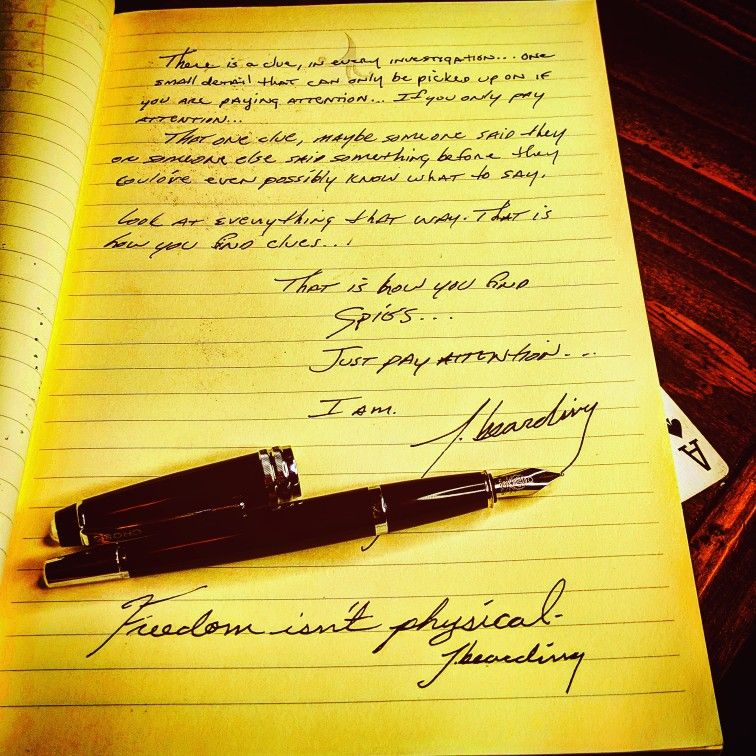 There is a clue, in every investigation... one
small detail that can only be picked up on if
you are paying attention... If you only pay
attention...
That one clue, maybe someone said they
or someone else said something before they
could've even possibly know what to say.
Look at everything that way. That is
how you find clues...
That is how you find
Spies...
Just pay attention...
I am.
J. beardivy
CROSS
A
Freedom isn't physical-